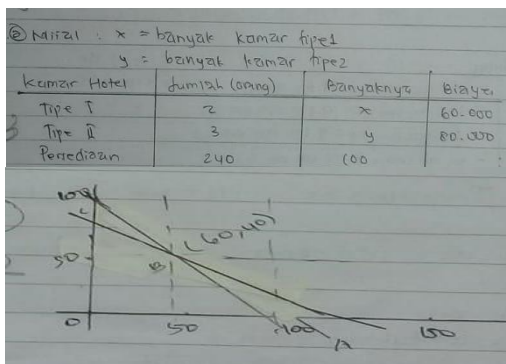 ② Misal : x = banyak kamar tipe1
y = banyak kamar tipe2
Kamar Hotel Jumlah (orang) Banyaknya Biaya
Tipe I 2 x 60.000
Tipe II 3 y 80.000
Persediaan 240 100
100
C
(60,40)
50
B
0 50 100 A 150